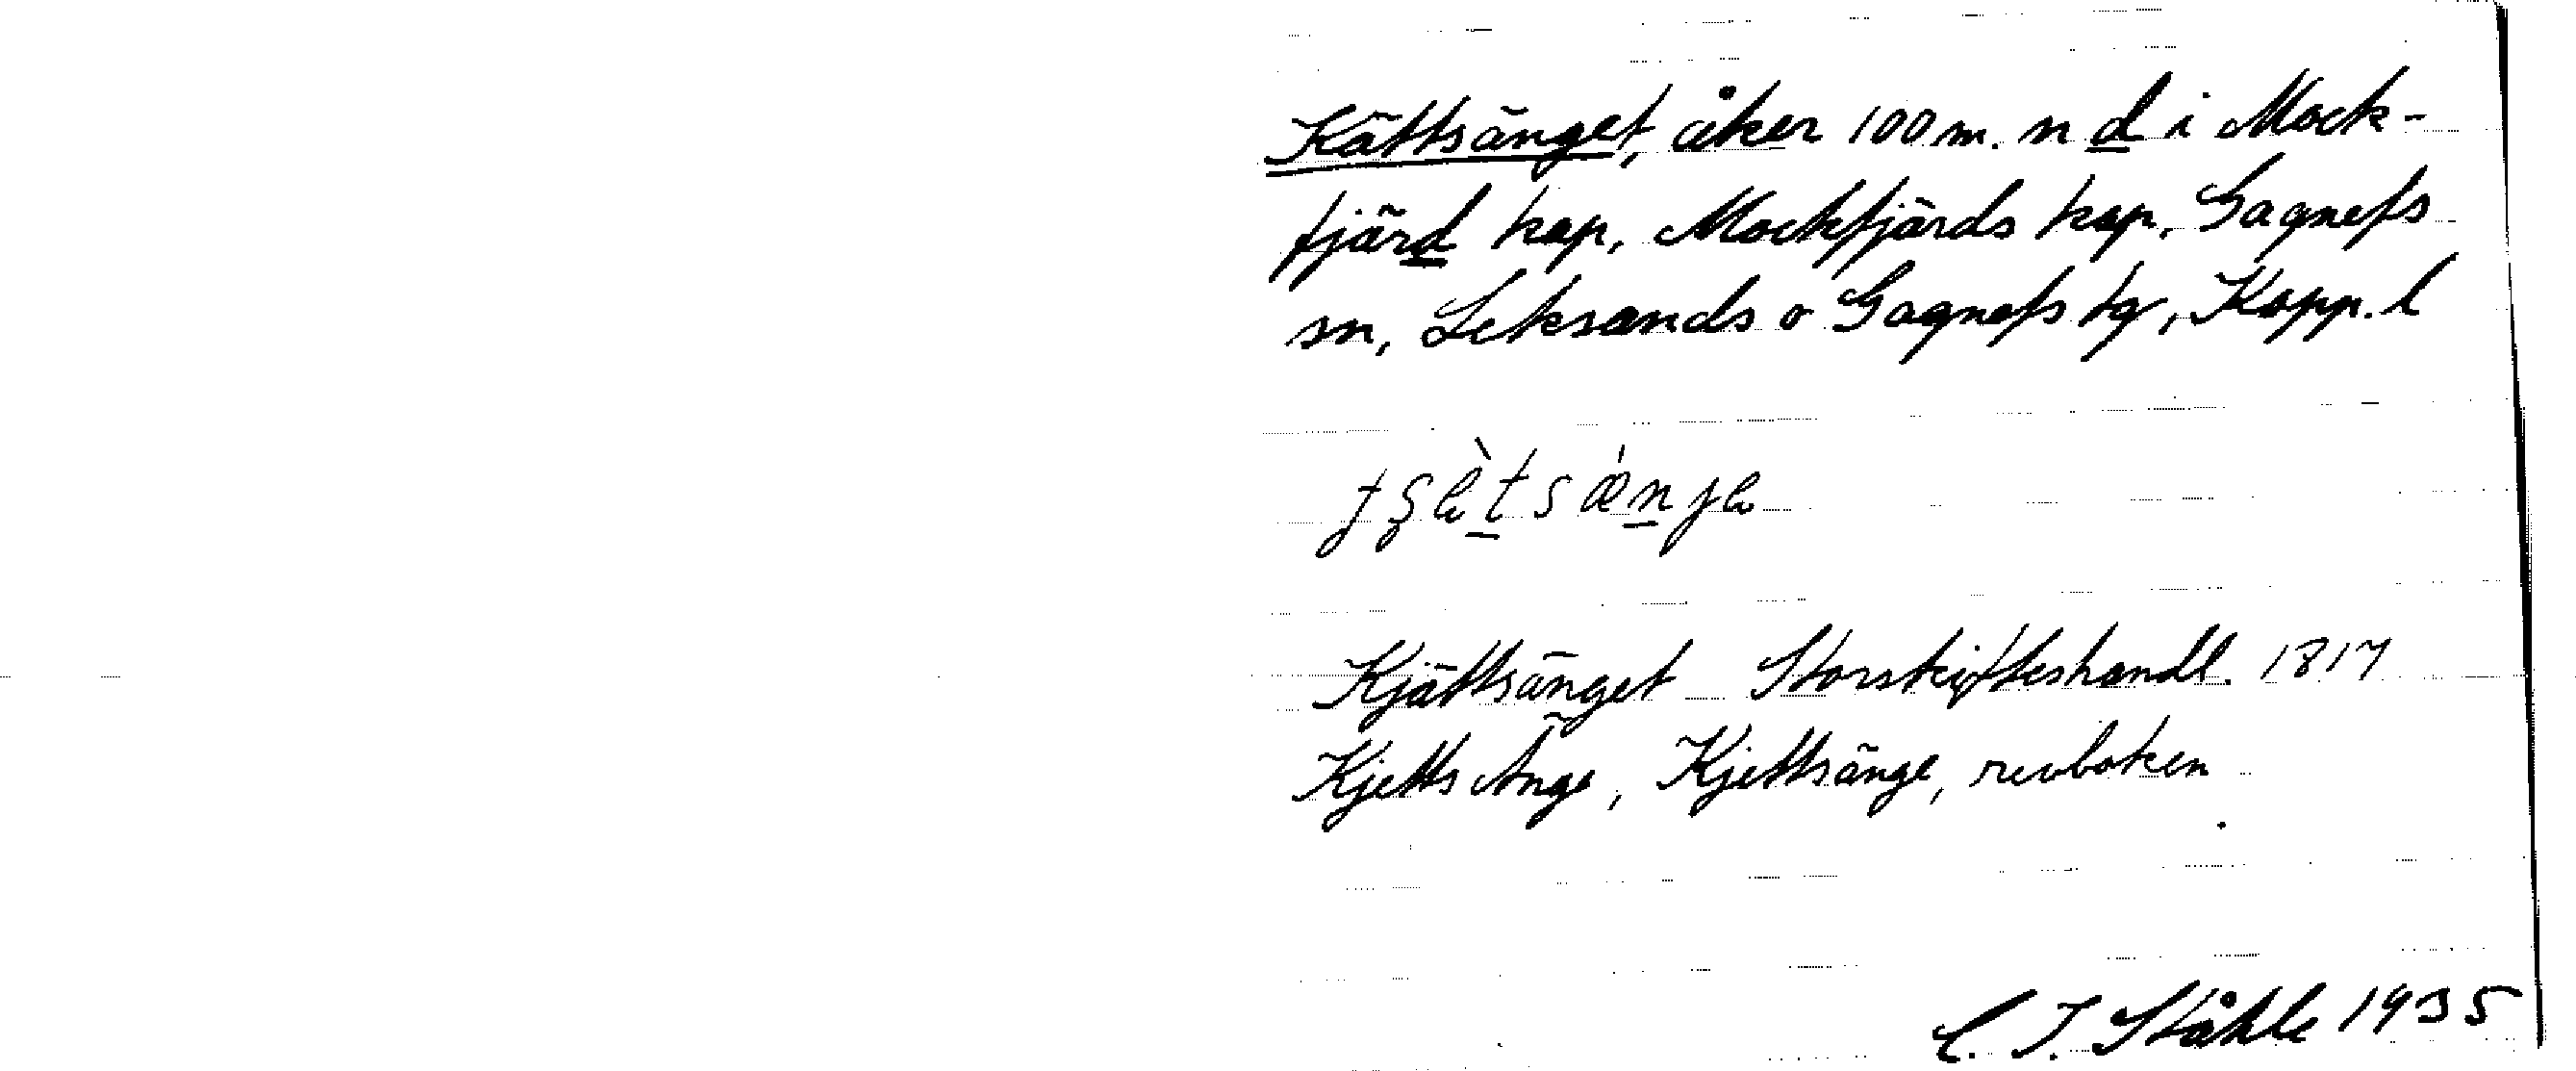 Kättsänget, åker 100 m. n d i Mock-
fjärd kap, Mockfjärds kap, Gagnefs
sn, Leksands o Gagnefs tg, Kopp. l
Kjättsänget Storskifteshandl. 1817
Kjetts Änge, Kjettsänge, revboken
C. I. Ståhle 1935